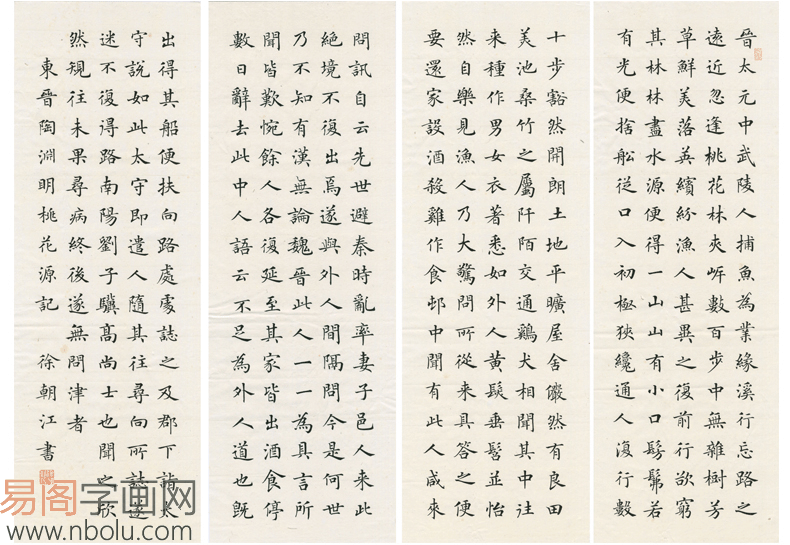 晉太元中武陵人捕魚為業緣溪行忘路之
遠近忽逢桃花林夾岸數百步中無雜樹芳
草鮮美落英繽紛漁人甚異之復前行欲窮
其林林盡水源便得一山山有小口髣髴若
有光便捨船從口入初極狹纔通人復行數
十步豁然開朗土地平曠屋舍儼然有良田
美池桑竹之屬阡陌交通鷄犬相聞其中往
来種作男女衣著悉如外人黃髮垂髫並怡
然自樂見漁人乃大驚問所從来具答之便
要還家設酒殺雞作食邨中聞有此人咸來
問訊自云先世避秦時亂率妻子邑人来此
絕境不復出焉遂與外人間隔問今是何世
乃不知有漢無論魏晉此人一一為具言所
聞皆歎惋餘人各復延至其家皆出酒食停
數日辭去此中人語云不足為外人道也既
出得其船便扶向路處處誌之及郡下詣太
守說如此太守即遣人隨其往尋向所誌遂
迷不復得路南陽劉子驥高尚士也聞之欣
然規往未果尋病終後遂無問津者
東晉陶淵明桃花源記 徐朝江書
易阁字画网
www.nbolu.com